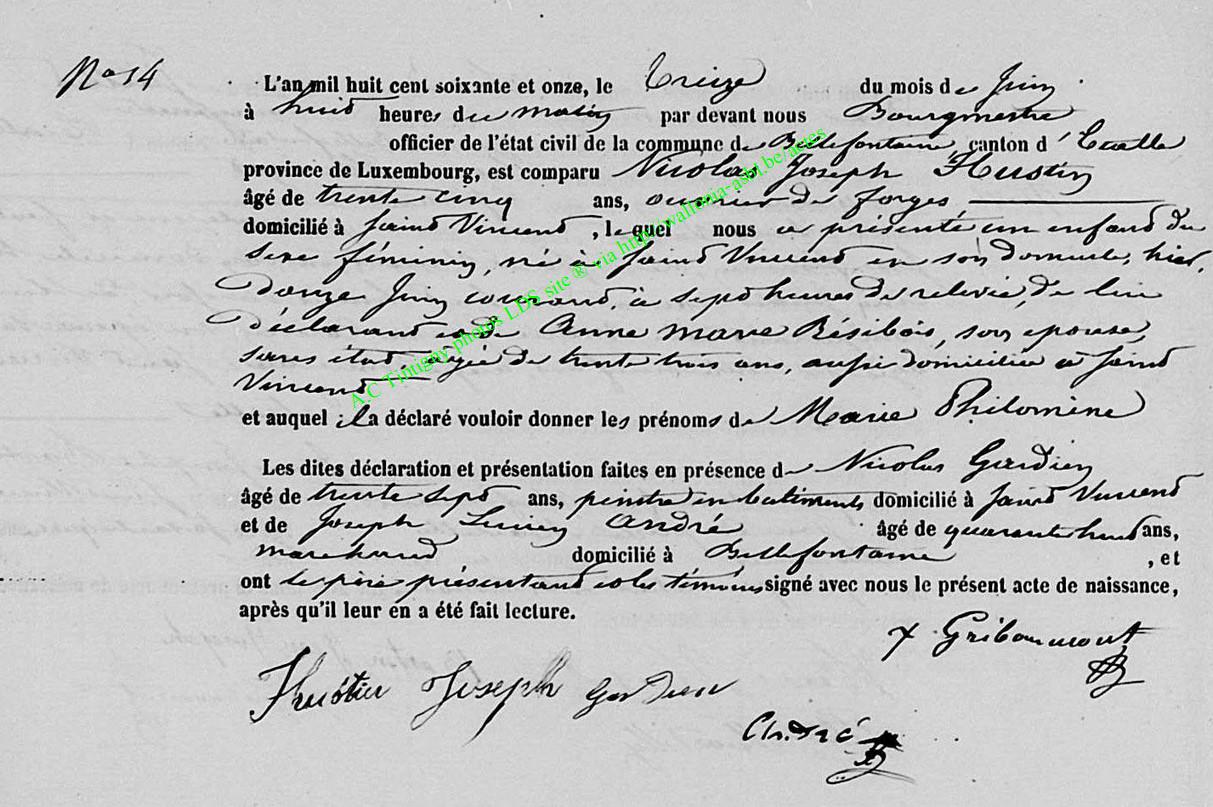 No 14
L'an mil huit cent soixante et onze, le treize du mois de Juin
à huit heures du matin par devant nous Bourgmestre
officier de l'état civil de la commune de Bellefontaine, canton d'Etalle
province de Luxembourg, est comparu Nicolas Joseph Hustin
âgé de trente cinq ans, ouvrier de forges
domicilié à Saint Vincent, lequel nous a présenté un enfant du
sexe féminin, né à Saint Vincent en son domicile, hier,
douze Juin courant, à sept heures de relevée, de lui
déclarant et de Anne Marie Résibois, son épouse,
sans état, âgée de trente trois ans, aussi domiciliée à Saint
Vincent
et auquel il a déclaré vouloir donner les prénoms de Marie Philomène
Les dites déclaration et présentation faites en présence de Nicolas Gardien
âgé de trente sept ans, peintre en batiments domicilié à Saint Vincent
et de Joseph Lucien André âgé de quarante huit ans,
marchand domicilié à Bellefontaine, et
ont le père présentant et les témoins signé avec nous le présent acte de naissance,
après qu'il leur en a été fait lecture.
Gribaumont
Joseph Gardien
André
A.C Tintigny photos LDS site ® via http://wallonia-asbl.be/actes